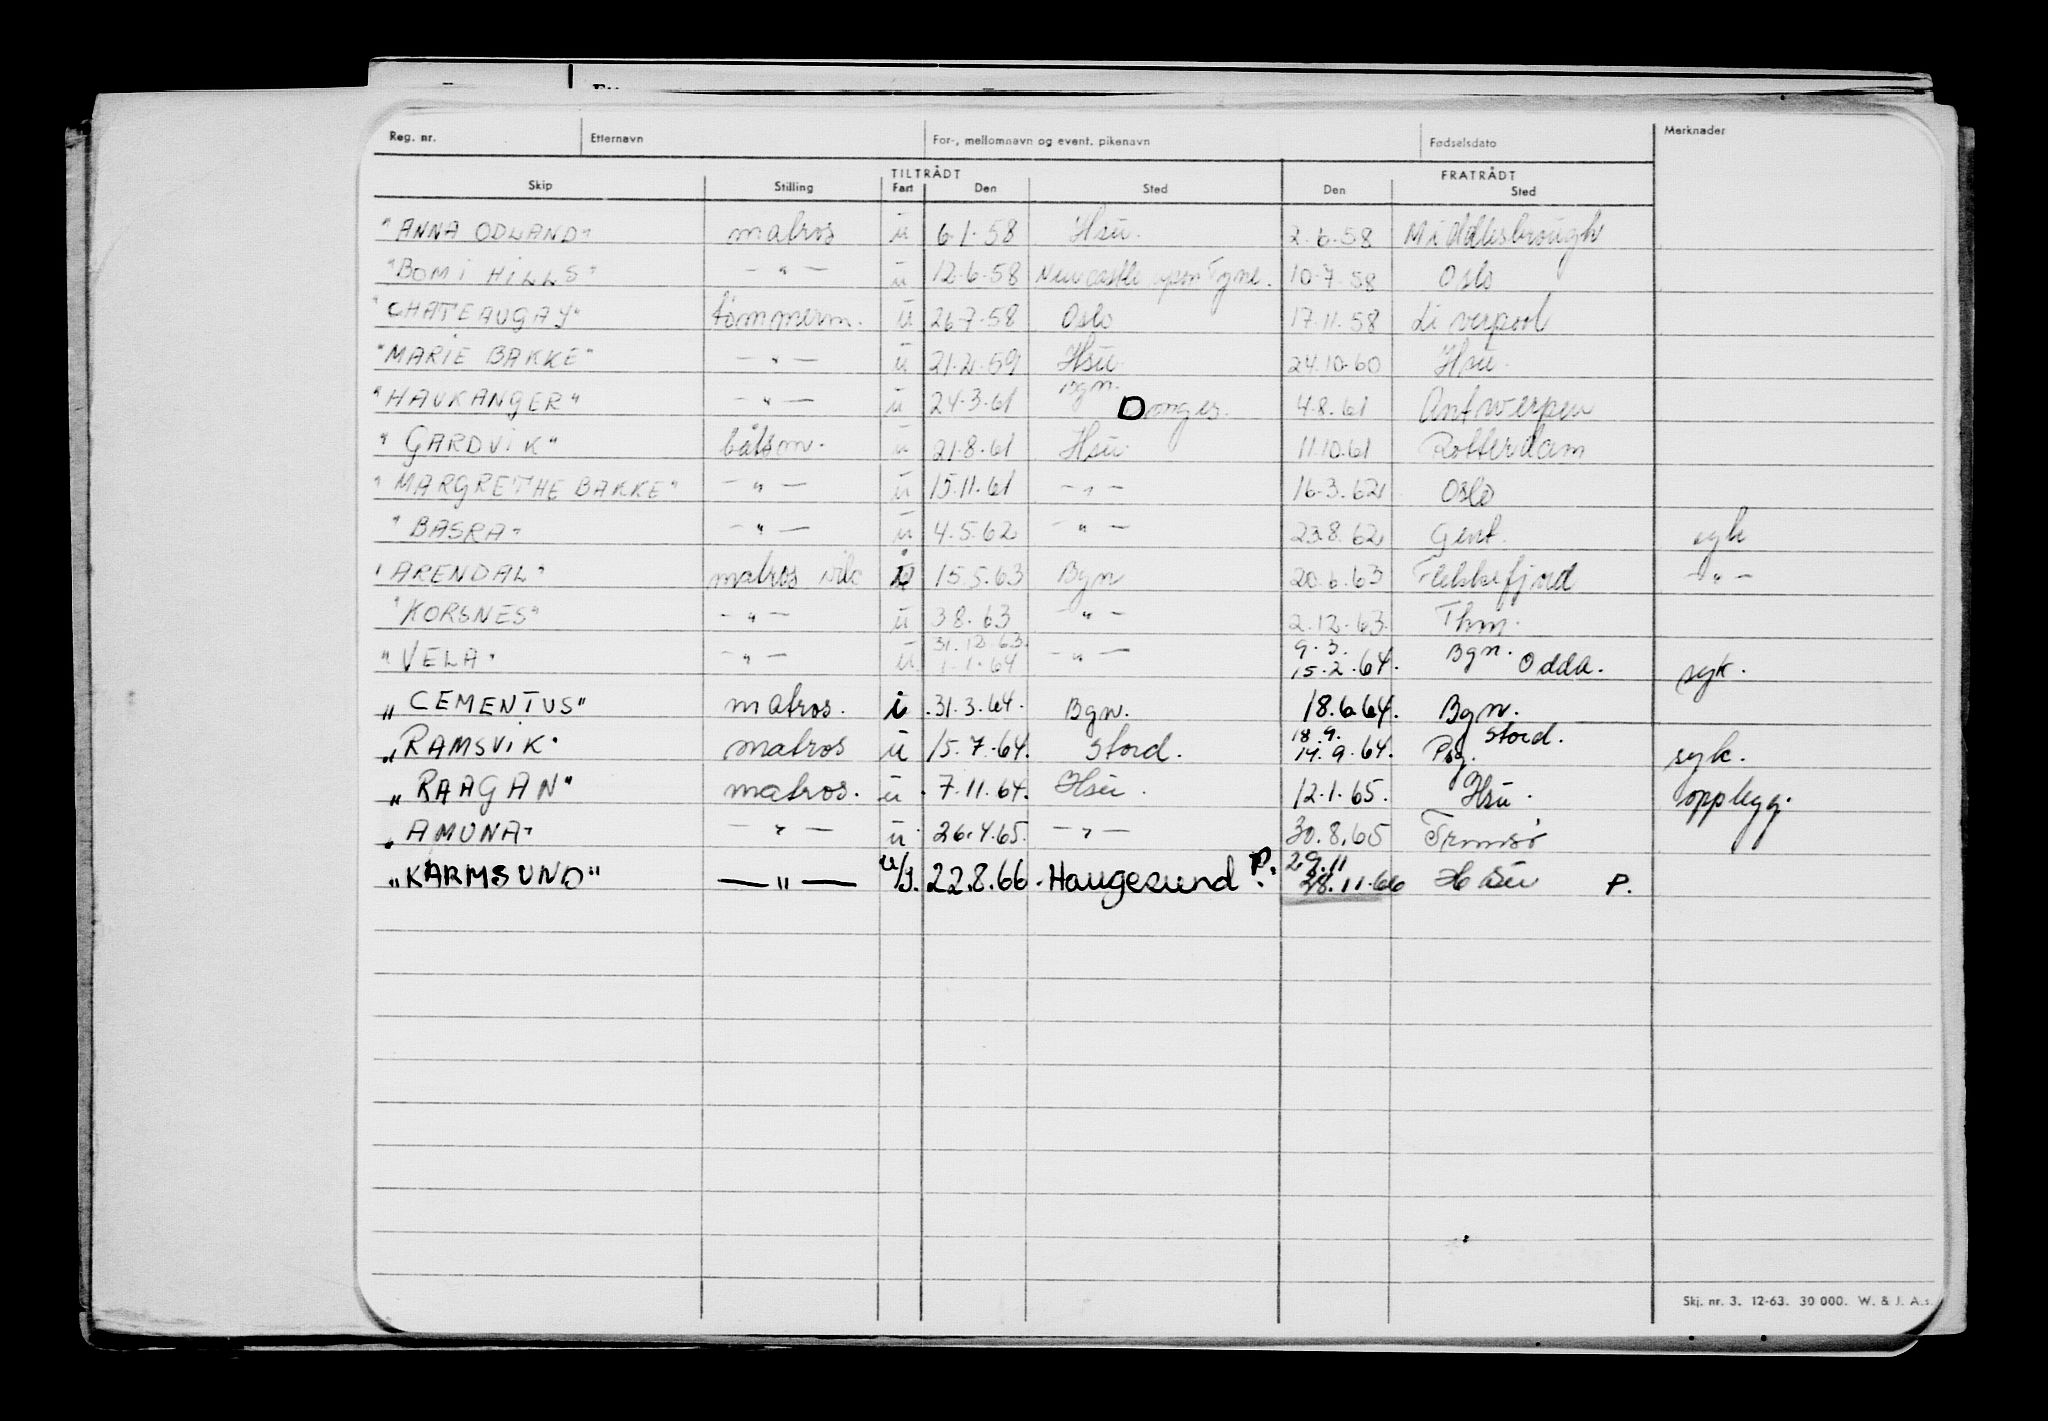 Reg. nr. Etternavn For-, mellomnavn og event. pikenavn Fødselsdato Merknader
TILTRÅDT FRATRÅDT
Skip Stilling Fart Den Sted Den Sted
"ANNA ODLAND" matros u 6.1.58 Hsu. 2.6.58 Middlesbrough
"BOMI HILLS" — " — u 12.6.58 Newcastle upon Tyne. 10.7.58 Oslo
"CHATEAUGAY" tømmerm. u 26.7.58 Oslo 17.11.58 Liverpool
"MARIE BAKKE" — " — u 21.2.59 Hsu 24.10.60 Hsu.
"HAUKANGER" — " — u 24.3.61 Bgn. Donges. 4.8.61 Antwerpen
"GARDVIK" båtsm. u 21.8.61 Hsu. 11.10.61 Rotterdam
"MARGRETHE BAKKE" — " — u 15.11.61 — " — 16.3.62 Oslo
"BASRA" — " — u 4.5.62 — " — 23.8.62 Gent. syk
"ARENDAL" matros i 15.5.63 Bgn 20.6.63 Flekkefjord — " —
"KORSNES" — " — u 3.8.63 — " — 2.12.63. Thm.
"VELA" — " — u 31.12.63. 1.1.64 — " — 9.3. 15.2.64. Bgn. Odda. syk.
"CEMENTUS" matros. i 31.3.64. Bgn. 18.6.64. Bgn.
"RAMSVIK" matros u 15.7.64. Stord. 18.9. 14.9.64. Psg. Stord. syk.
"RAAGAN" matros. u 7.11.64. Hsu. 12.1.65. Hsu. opplegg.
"AMUNA" — " — u 26.4.65. — " — 30.8.65 Tromsø
"KARMSUND" — " — u/I. 22.8.66. Haugesund P. 29.11 28.11.66 Hsu P.
Skj. nr. 3. 12-63. 30 000. W. & J. A.s.